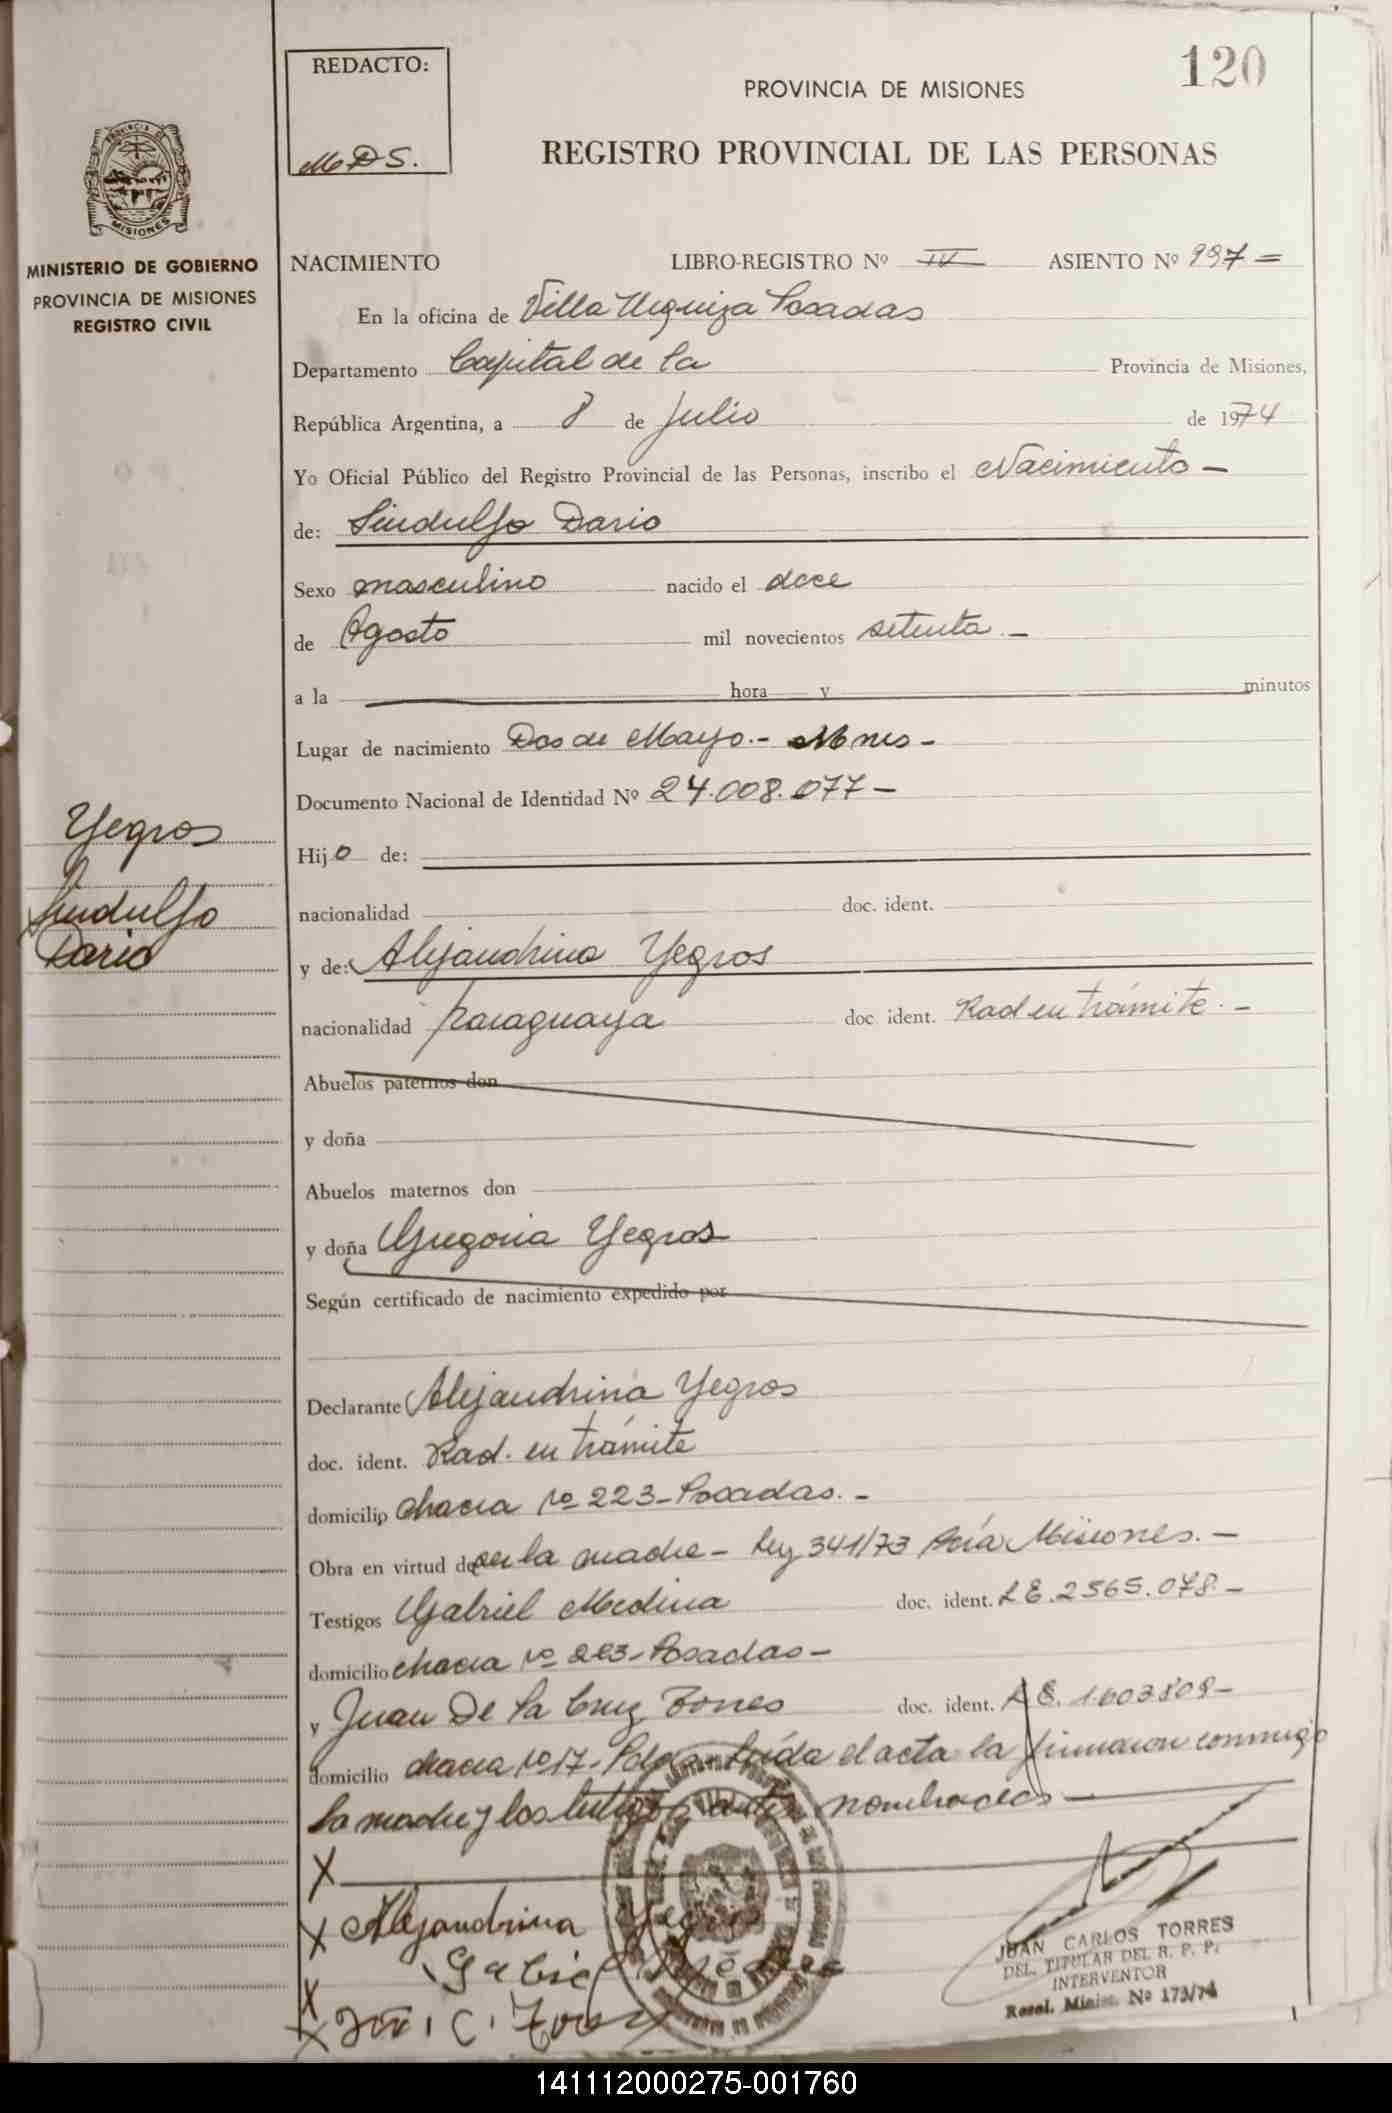 REDACTO:
MDS.
120
PROVINCIA DE MISIONES
REGISTRO PROVINCIAL DE LAS PERSONAS
MISIONES
MINISTERIO DE GOBIERNO
PROVINCIA DE MISIONES
REGISTRO CIVIL
NACIMIENTO LIBRO-REGISTRO Nº IV ASIENTO Nº 997=
En la oficina de Villa Urquiza Posadas
Departamento Capital de la Provincia de Misiones,
República Argentina, a 8 de Julio de 1974
Yo Oficial Público del Registro Provincial de las Personas, inscribo el Nacimiento -
de: Sindulfo Dario
Sexo masculino nacido el doce
de Agosto mil novecientos setenta. -
a la hora y minutos
Lugar de nacimiento Dos de Mayo.- Mnes -
Documento Nacional de Identidad Nº 24.008.077 -
Yegros
Sindulfo
Dario
Hijo de:
nacionalidad doc. ident.
y de: Alejandrina Yegros
nacionalidad paraguaya doc ident. Rad en trámite. -
Abuelos paternos don
y doña
Abuelos maternos don
y doña Gregoria Yegros
Según certificado de nacimiento expedido por
Declarante Alejandrina Yegros
doc. ident. Rad. en trámite
domicilio chacra nº 223 - Posadas. -
Obra en virtud de ser la madre - Ley 341/73 Pcia Misiones. -
Testigos Gabriel Medina doc. ident. LE. 2565.078. -
domicilio chacra nº 223 - Posadas -
y Juan De la Cruz Torres doc. ident. LE. 1.603809 -
domicilio chacra nº 17 - Pdas - Leída el acta la firmaron conmigo
la madre y los testigos antes nombrados -
X
X Alejandrina Yegros
Gabriel Medina
X
X
JUAN CARLOS TORRES
DEL. TITULAR DEL R. P. P.
INTERVENTOR
Resol. Minist. Nº 173/74
141112000275-001760